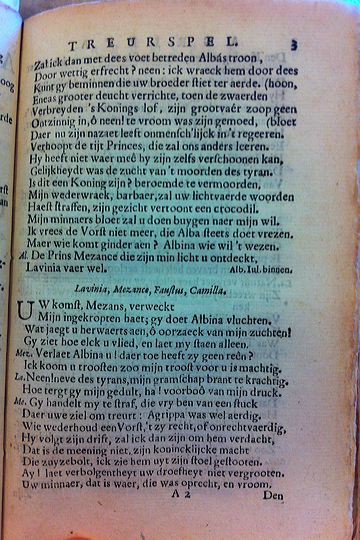 TREURSPEL. 3
Zal ick dan met dees voet betreden Albás troon,
Door wettig erfrecht? neen: ick wraeck hem door dees
Kunt gy beminnen die uw broeder stiet ter aerde. (hoon,
Eneas grooter deucht verrichte, toen de zwaerden
Verbreyden 's Konings lof, zijn grootvaér zoop geen
Ontzinnig in, ô neen! te vroom was zijn gemoed, (bloet
Daer nu zijn nazaet leeft onmensch'lijck in 't regeeren.
Verhoopt de tijt Princes, die zal ons anders leeren.
Hy heeft niet waer meê hy zijn zelfs verschoonen kan,
Gelijkheydt was de zucht van 't moorden des tyran.
Is dit een Koning zijn? beroemde te vermoorden,
Mijn wederwrack, barbaer, zal uw lichtvaerde woorden
Haest straffen, zijn gezicht vertoont een crocodil.
Mijn minnaers bloet zal u doen buygen naer mijn wil.
Ik vrees de Vorst niet meer, die Alba steets doet vrezen.
Maer wie komt ginder aen? Albina wie wil 't wezen.
Al. De Prins Mezance die zijn min licht u ontdeckt,
Lavinia vaer wel. Alb. Iul. binnen.
Lavinia, Mezance, Faustus, Camilla.
UW komst, Mezans, verweckt
Mijn ingekropten haet; gy doet Albina vluchten.
Wat jaegt u herwaerts aen, ô oorzaeck van mijn zuchten!
Gy ziet hoe elck u vlied, en laet my staen alleen.
Mez. Verlaet Albina u! daer toe heeft zy geen reên?
Ick koom u troosten zoo mijn troost voor u is machtig.
La. Neen! neve des tyrans, mijn gramschap brant te krachtig.
Hoe tergt gy mijn gedult, ha! voorboô van mijn druck.
Me. Gy handelt my te straf, die vry ben van een stuck
Daer uwe ziel om treurt: Agrippa was wel aerdig.
Wie wederhoud een Vorst, 't zy recht, of onrechtvaerdig,
Hy volgt zijn drift, zal ick dan zijn om hem verdacht,
Dat is de meening niet, zijn koninclijcke macht
Die zuyzebolt, ick zie hem uyt zijn stoel gestooten.
Ay! laet verbolgentheyt uw droefheyt niet vergrooten.
Uw minnaer, dat is waer, die was oprecht, en vroom,
A 2 Den